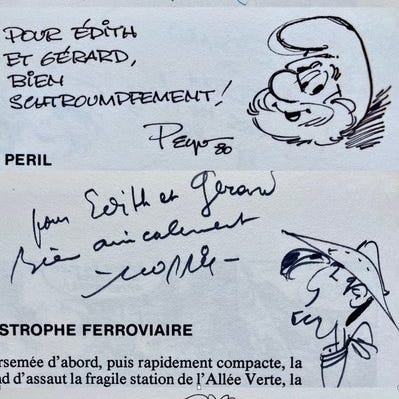 POUR ÉDITH
ET GÉRARD,
BIEN
SCHTROUMPFEMENT!
Peyo 80
PERIL
pour Edith et Gérard
Bien amicalement
-Morris-
STROPHE FERROVIAIRE
rsemée d'abord, puis rapidement compacte, la
d d'assaut la fragile station de l'Allée Verte, la